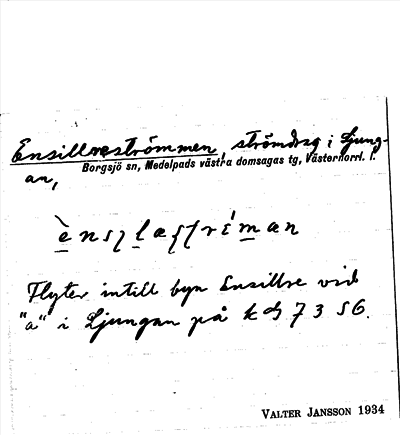 Ensillreströmmen, strömdrag i Ljung-
Borgsjö sn, Medelpads västra domsagas tg, Västernorrl. l.
an,
Flyter intill byn Ensillre vid
"a" i Ljungan på kbl 73 S6.
VALTER JANSSON 1934